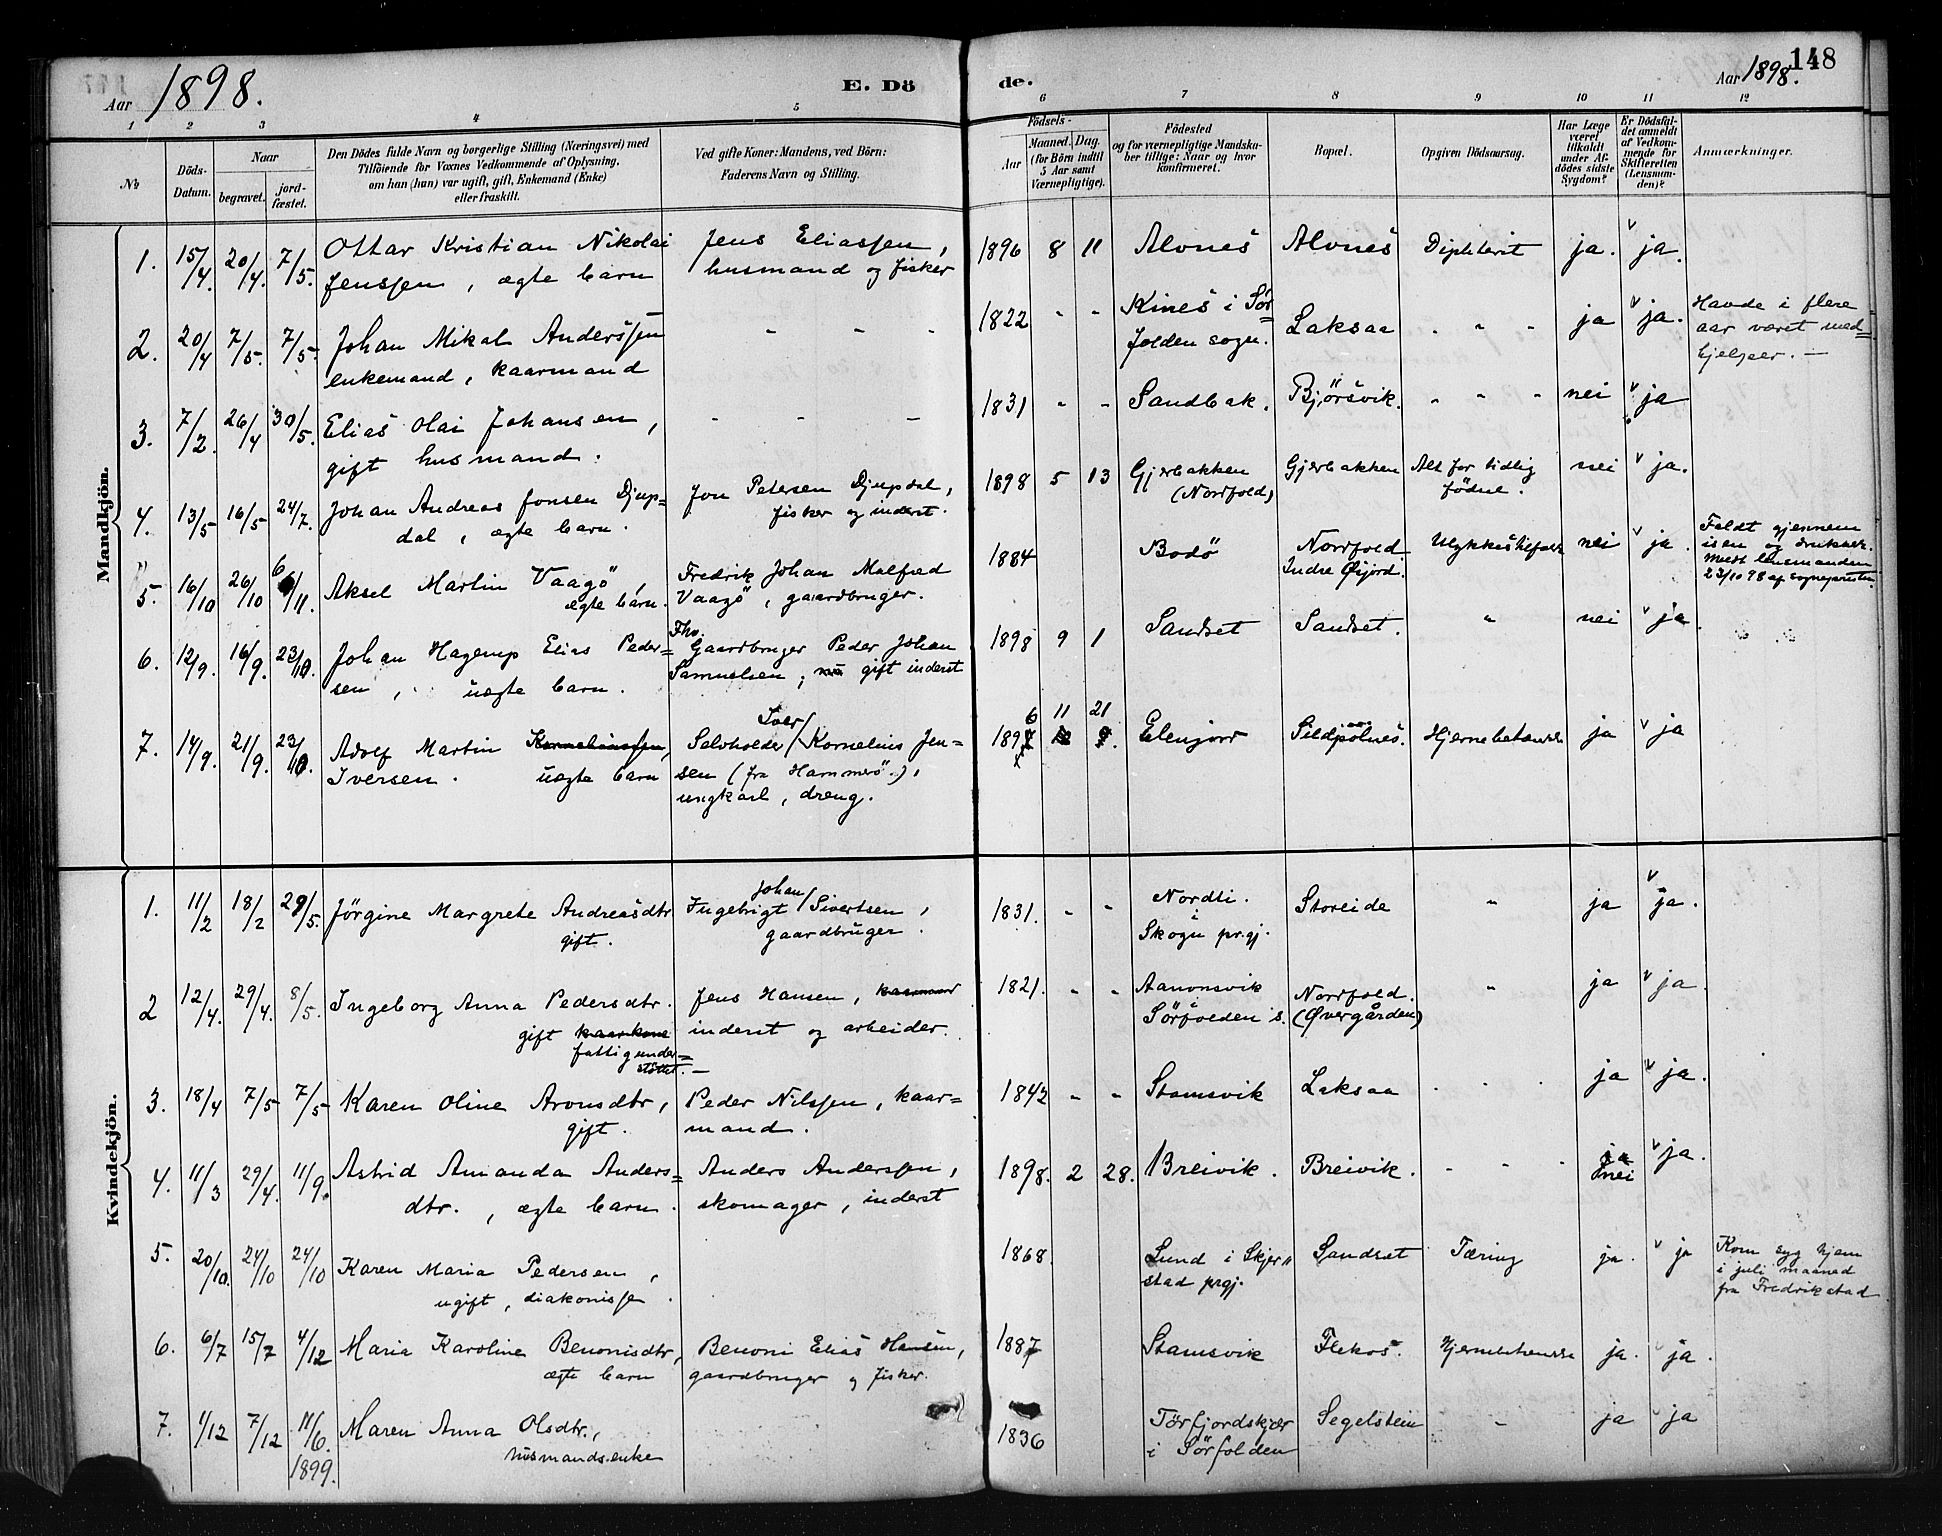 Aar 1898.
E. Dö
de.
Aar 1898.
148
1 2 3 4 5 6 7 8 9 10 11 12
No
Döds-
Datum.
Naar
begravet.
jord-
fæstet.
Den Dödes fulde Navn og borgerlige Stilling (Næringsvei) med
Tilföiende for Voxnes Vedkommende af Oplysning,
om han (hun) var ugift, gift, Enkemand (Enke)
eller fraskilt.
Ved gifte Koner: Mandens, ved Börn:
Faderens Navn og Stilling.
Födsels-
Aar
Maaned. Dag.
(for Börn indtil
5 Aar samt
Værnepligtige).
Födested
og for værnepligtige Mandska-
ber tillige: Naar og hvor
konfirmeret.
Bopæl.
Opgiven Dödsaarsag.
Har Læge
været
tilkaldt
under Af-
dödes sidste
Sygdom?
Er Dödsfal-
det anmeldt
af Vedkom-
mende for
Skifteretten
(Lensman-
den)?
Anmærkninger.
Mandkjön.
1. 15/4. 20/4. 7/5. Ottar Kristian Nikolai Jens Eliassen, 1896 8 11 Alvnes Alvnes Diphterit ja. v ja.
Jenssen, ægte barn husmand og fisker
2. 20/4 7/5. 7/5. Johan Mikal Anderssen - - - 1822 - - Kines i Sör= Laksaa - - - ja v ja. Havde i flere
enkemand, kaarmand folden sogn. aar været med=
hjelper. —
3. 7/2. 26/4 30/5. Elias Olai Johansen, - - - 1831 - - Sandbak. Bjørsvik. - - - nei v ja
gift husmand.
4. 13/5 16/5 24/7. Johan Andreas Jonsen Djup- Jon Petersen Djupdal, 1898 5 13 Gjerbakken Gjerbakken Alt for tidlig nei v ja.
dal, ægte barn. fisker og inderst. (Nordfold) födsel.
5. 16/10 26/10 6/11. Aksel Martin Vaagö, Fredrik Johan Malfred 1884 Bodö Nordfold Ulykkestilfælde nei v ja. Faldt gjennem
ægte barn. Vaagö, gaardbruger. Indre Øijord. isen og druknet.
Meldt lensmanden
23/10 98 af sognepresten.
6. 12/9. 16/9. 23/10. Johan Hagerup Elias Peder= Fhv. Gaardbruger Peder Johan 1898 9 1 Sandset Sandset. " nei v ja
sen, uægte barn. Samuelsen, nu gift inderst
7. 14/9. 21/9. 23/10. Adolf Martin Korneliussen, Selvholder / Iver / Kornelius Jen= 1896 11 21 Elenjord Sildpolnes. Hjernebetændelse ja v ja
Iversen. uægte barn sen (fra Hammerö.),
ungkarl, dreng.
Kvindekjön.
1. 11/2 18/2 29/5. Jörgine Margrete Andreasdtr Ingebrigt / Johan / Sivertsen, 1831. - - Nordli. Storeide " ja v ja.
gift. gaardbruger. i
Skogn prgj.
2 12/4. 29/4. 8/5. Ingeborg Anna Pedersdtr. Jens Hansen, kaarmand 1821. - - Aanonsvik Nordfold. " ja v ja.
gift kaarkone inderst og arbeider. Sörfolden s. (Øvergården)
fattigunder=
stöttet. —
3. 18/4 7/5 7/5 Karen Oline Aronsdtr, Peder Nilssen, kaar= 1842 - - Stamsvik Laksaa - - - ja v ja.
gift. mand.
4. 11/3 29/4. 11/9. Astrid Amanda Anders= Anders Anderssen, 1898. 2 28. Breivik. Breivik. - - - ja v ja.
dtr., ægte barn. skomager, inderst nei
5. 20/10. 24/10 24/10 Karen Maria Pedersen, 1868. Lund i Skjer= Sandset Tæring ja. v ja Kom syg hjem
ugift, diakonisse. stad prgj. i juli maaned
fra Fredrikstad
6. 6/7 15/7 4/12 Maria Karoline Benonisdtr, Benoni Elias Hansen, 1887 Stamsvik Flekos Hjernebetændelse ja. ja.
ægte barn gaardbruger og fisker.
7. 1/12 7/12 11/6. Maren Anna Olsdtr., 1836 Törfjordskjær Segelstein - ja ja
1899. husmandsenke i Sörfolden